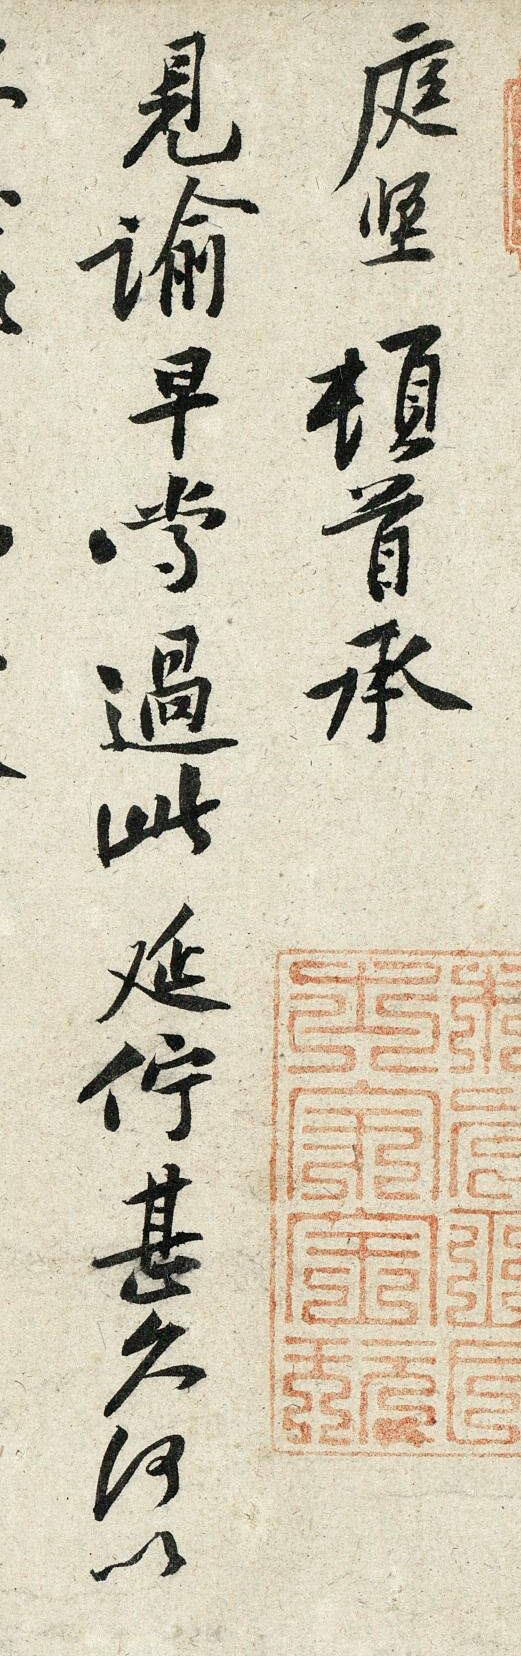 庭坚頓首承
見諭早嘗過此延佇甚久何以